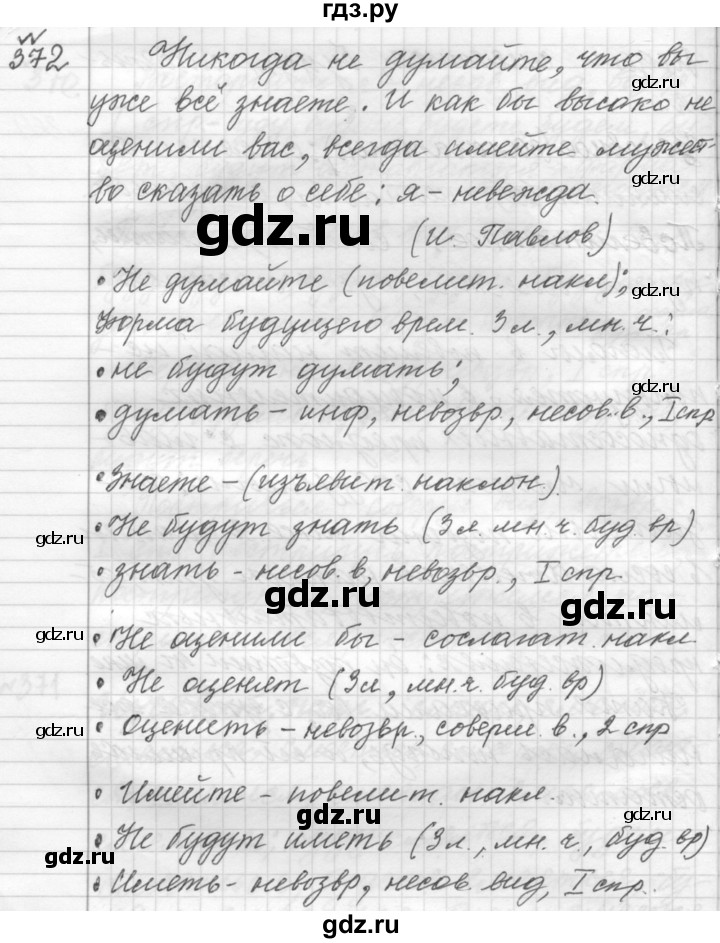 гдз.ру
№ 372 Никогда не думайте, что вы
уже всё знаете. И как бы высоко не
оценили вас, всегда имейте мужест-
во сказать о себе: я - невежда.
(И. Павлов)
• Не думайте (повелит. накл);
Форма будущего врем. 3 л., мн.ч.:
• не будут думать;
• думать - инф, невозвр., несов.в., I спр
• Знаете - (изъявит. наклон).
• Не будут знать (3 л. мн.ч. буд. вр)
• знать - несов. в, невозвр., I спр.
• Не оценили бы - сослагат. накл
• Не оценят (3 л, мн.ч. буд. вр)
• Оценить - невозвр., соверш. в., 2 спр
• Имейте - повелит. накл.
• Не будут иметь (3 л., мн. ч, буд. вр)
• Иметь - невозвр, несов. вид, I спр.
gdz.ru
gdz.ru
gdz.ru
gdz.ru
gdz.ru
gdz.ru
gdz.ru
gdz.ru
gdz.ru
gdz.ru
gdz.ru
gdz.ru
gdz.ru
gdz.ru